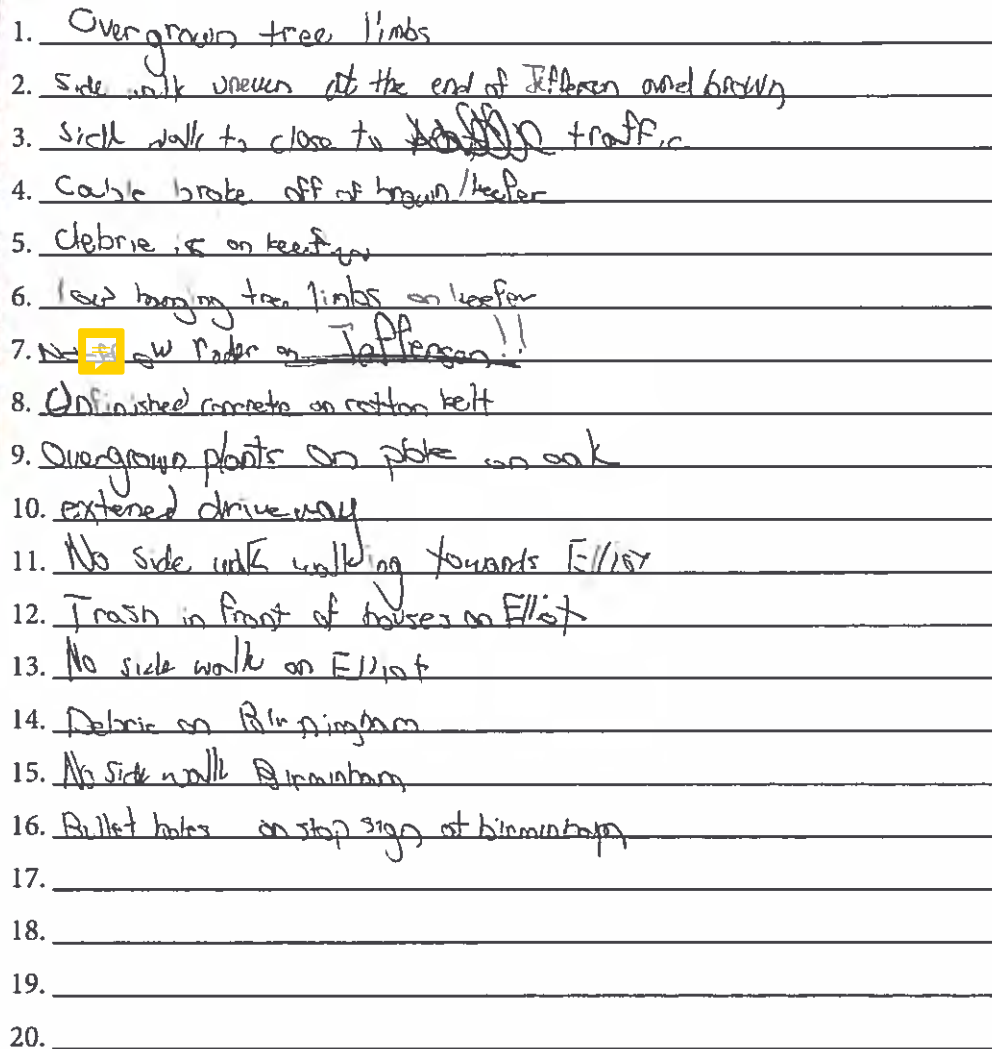 1. Overgrown tree limbs
2. side walk uneven at the end of Jefferson and brown
3. side walk to close to traffic
4. Cable broke off of brown/keefer
5. debrie is on keefer
6. low hanging tree limbs on keefer
7. Rader on Jefferson!!
8. Unfinished concrete on cotton belt
9. Overgrown plants on poke on oak
10. extened driveway
11. No side walk walking towards Elliot
12. Trash in front of houses on Elliot
13. No side walk on Elliot
14. Debrie on Birmingham
15. No side walk Birminham
16. Bullet holes on stop sign at birminham
17.
18.
19.
20.